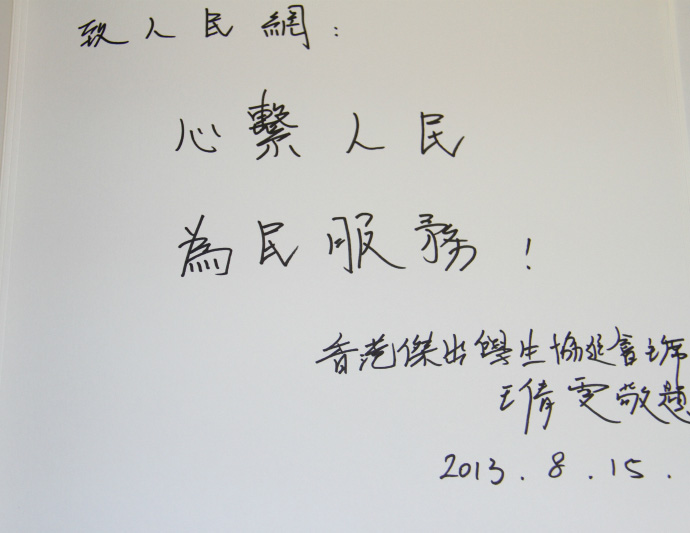 致人民網：
心繫人民
為民服務！
香港傑出學生協進會主席
王倩雯敬題
2013.8.15.